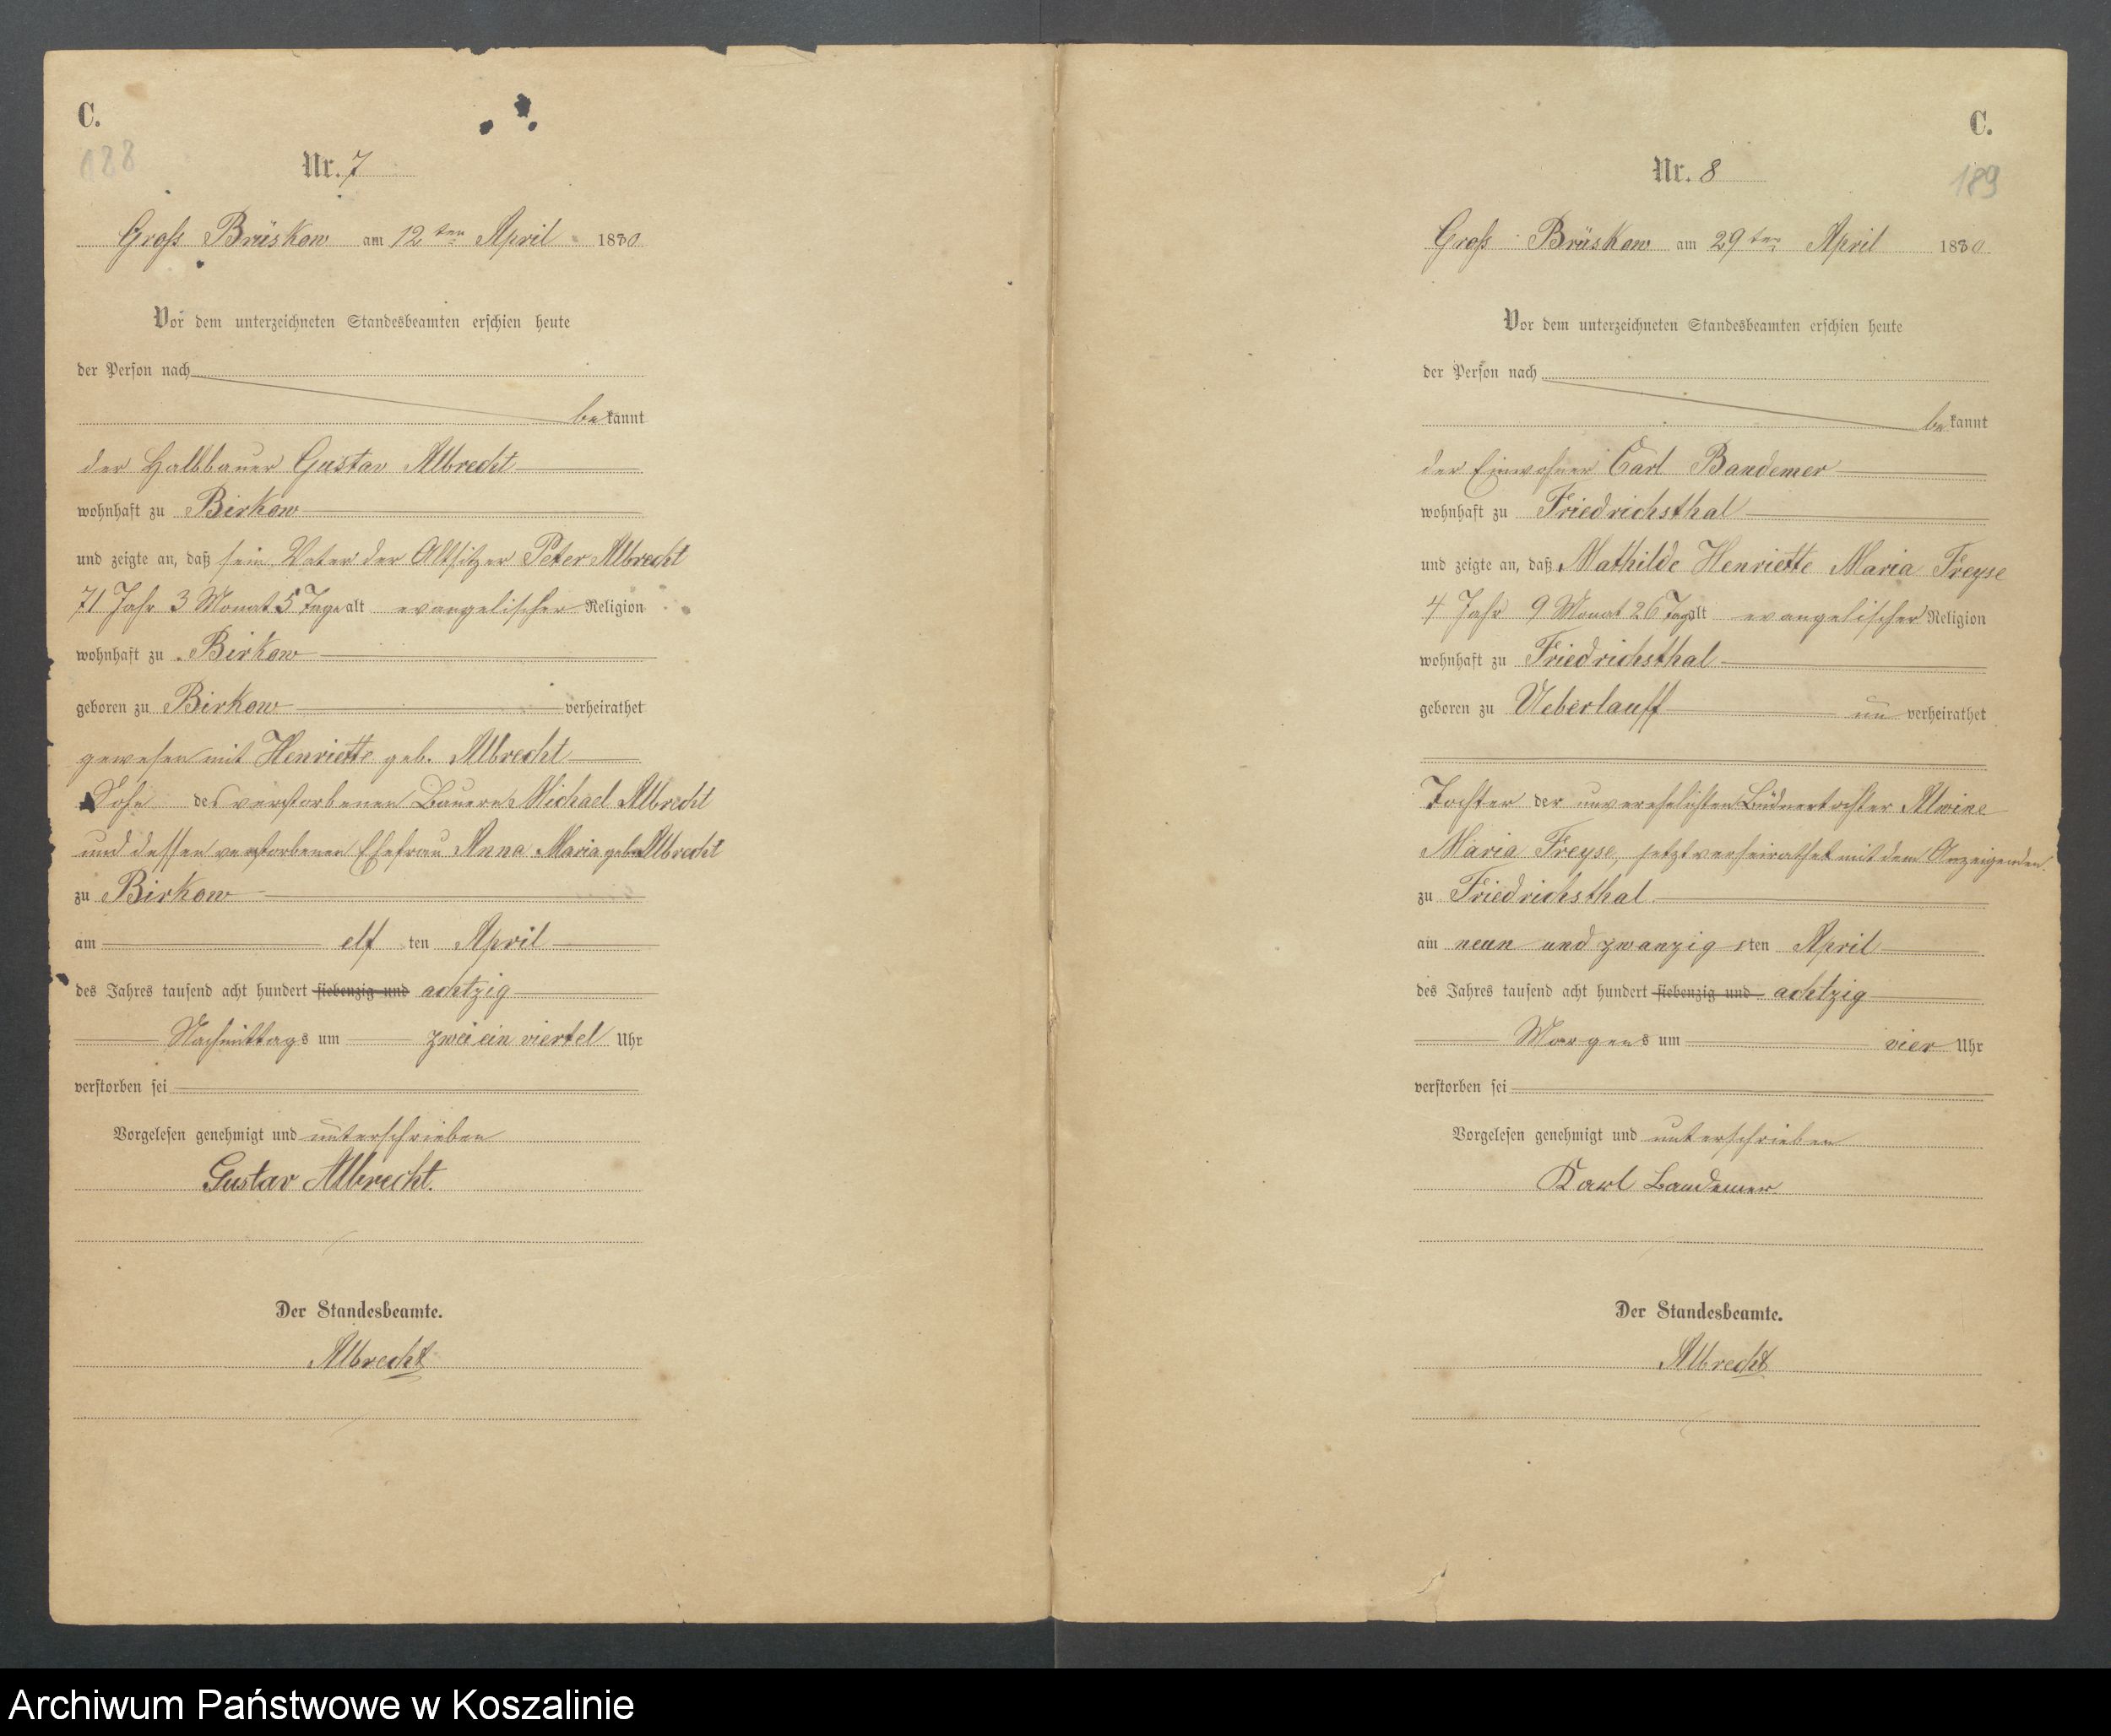 C.
188
Nr. 7
Groß Brüskow am 12ten April 1880
Vor dem unterzeichneten Standesbeamten erschien heute
der Person nach
bekannt
der Halbbauer Gustav Albrecht
wohnhaft zu Birkow
und zeigte an, daß sein Vater der Altsitzer Peter Albrecht
71 Jahr 3 Monat 5 Tage alt evangelischer Religion
wohnhaft zu Birkow
geboren zu Birkow verheirathet
gewesen mit Henriette geb. Albrecht
Sohn des verstorbenen Bauern Michael Albrecht
und dessen verstorbenen Ehefrau Anna Maria geb. Albrecht
zu Birkow
am elf ten April
des Jahres tausend acht hundert siebenzig und achtzig
Nachmittags um zwei ein viertel Uhr
verstorben sei
Vorgelesen genehmigt und unterschrieben
Gustav Albrecht.
Der Standesbeamte.
Albrecht
C.
189
Nr. 8
Groß Brüskow am 29ten April 1880
Vor dem unterzeichneten Standesbeamten erschien heute
der Person nach
bekannt
der Einwohner Carl Bandemer
wohnhaft zu Friedrichsthal
und zeigte an, daß Mathilde Henriette Maria Freyse
4 Jahr 9 Monat 26 Tage alt evangelischer Religion
wohnhaft zu Friedrichsthal
geboren zu Ueberlauff un verheirathet
Tochter der unverehelichten Büdnertochter Alwine
Maria Freyse, jetzt verheirathet mit dem Anzeigenden.
zu Friedrichsthal
am neun und zwanzig sten April
des Jahres tausend acht hundert siebenzig und achtzig
Morgens um vier Uhr
verstorben sei
Vorgelesen genehmigt und unterschrieben
Karl Bandemer
Der Standesbeamte.
Albrecht
Archiwum Państwowe w Koszalinie